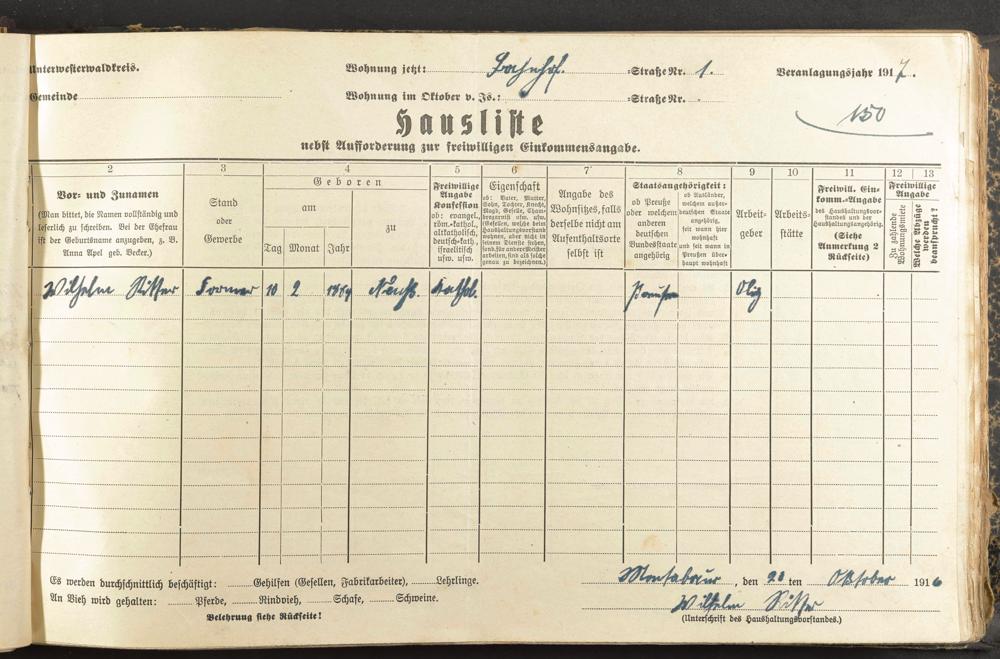 Unterwesterwaldkreis. Wohnung jetzt: Bahnhof. =Straße Nr. 1. Veranlagungsjahr 1917.
Gemeinde Wohnung im Oktober v. Js.: =Straße Nr.
150
Hausliste
nebst Aufforderung zur freiwilligen Einkommensangabe.
2 3 4 5 6 7 8 9 10 11 12 13
Vor- und Zunamen
(Man bittet, die Namen vollständig und
leserlich zu schreiben. Bei der Ehefrau
ist der Geburtsname anzugeben, z. B.
Anna Apel geb. Becker.)
Stand
oder
Gewerbe
Geboren
am
Tag Monat Jahr
zu
Freiwillige
Angabe
Konfession
ob: evangel.,
röm.-kathol.,
altkatholisch,
deutsch-kath.,
israelitisch
usw. usw.
Eigenschaft
ob: Vater, Mutter,
Sohn, Tochter, Knecht,
Magd, Geselle, Cham-
bregarnist usw. usw.
(Gesellen, welche beim
Haushaltungsvorstand
wohnen, aber nicht in
seinem Dienste stehen,
sond. für andere Meister
arbeiten, sind als solche
genau zu bezeichnen.)
Angabe des
Wohnsitzes, falls
derselbe nicht am
Aufenthaltsorte
selbst ist
Staatsangehörigkeit:
ob Preuße
oder welchem
anderen
deutschen
Bundesstaate
angehörig
ob Ausländer,
welchem außer-
deutschen Staate
angehörig,
seit wann hier
wohnhaft
und seit wann in
Preußen über-
haupt wohnhaft
Arbeit-
geber
Arbeits-
stätte
Freiwill. Ein-
komm.-Angabe
des Haushaltungsvor-
standes und der
Haushaltungsangehörig.
(Siehe
Anmerkung 2
Rückseite)
Freiwillige
Angabe
Zu zahlende
Wohnungsmiete
Welche Abzüge
werden
beansprucht?
Wilhelm Ritter Former 10 2 Kathol. Preuße
Es werden durchschnittlich beschäftigt: Gehilfen (Gesellen, Fabrikarbeiter), Lehrlinge.
An Vieh wird gehalten: Pferde, Rindvieh, Schafe, Schweine.
Belehrung siehe Rückseite!
Montabaur, den ten Oktober 1916
Wilhelm Ritter
(Unterschrift des Haushaltungsvorstandes.)